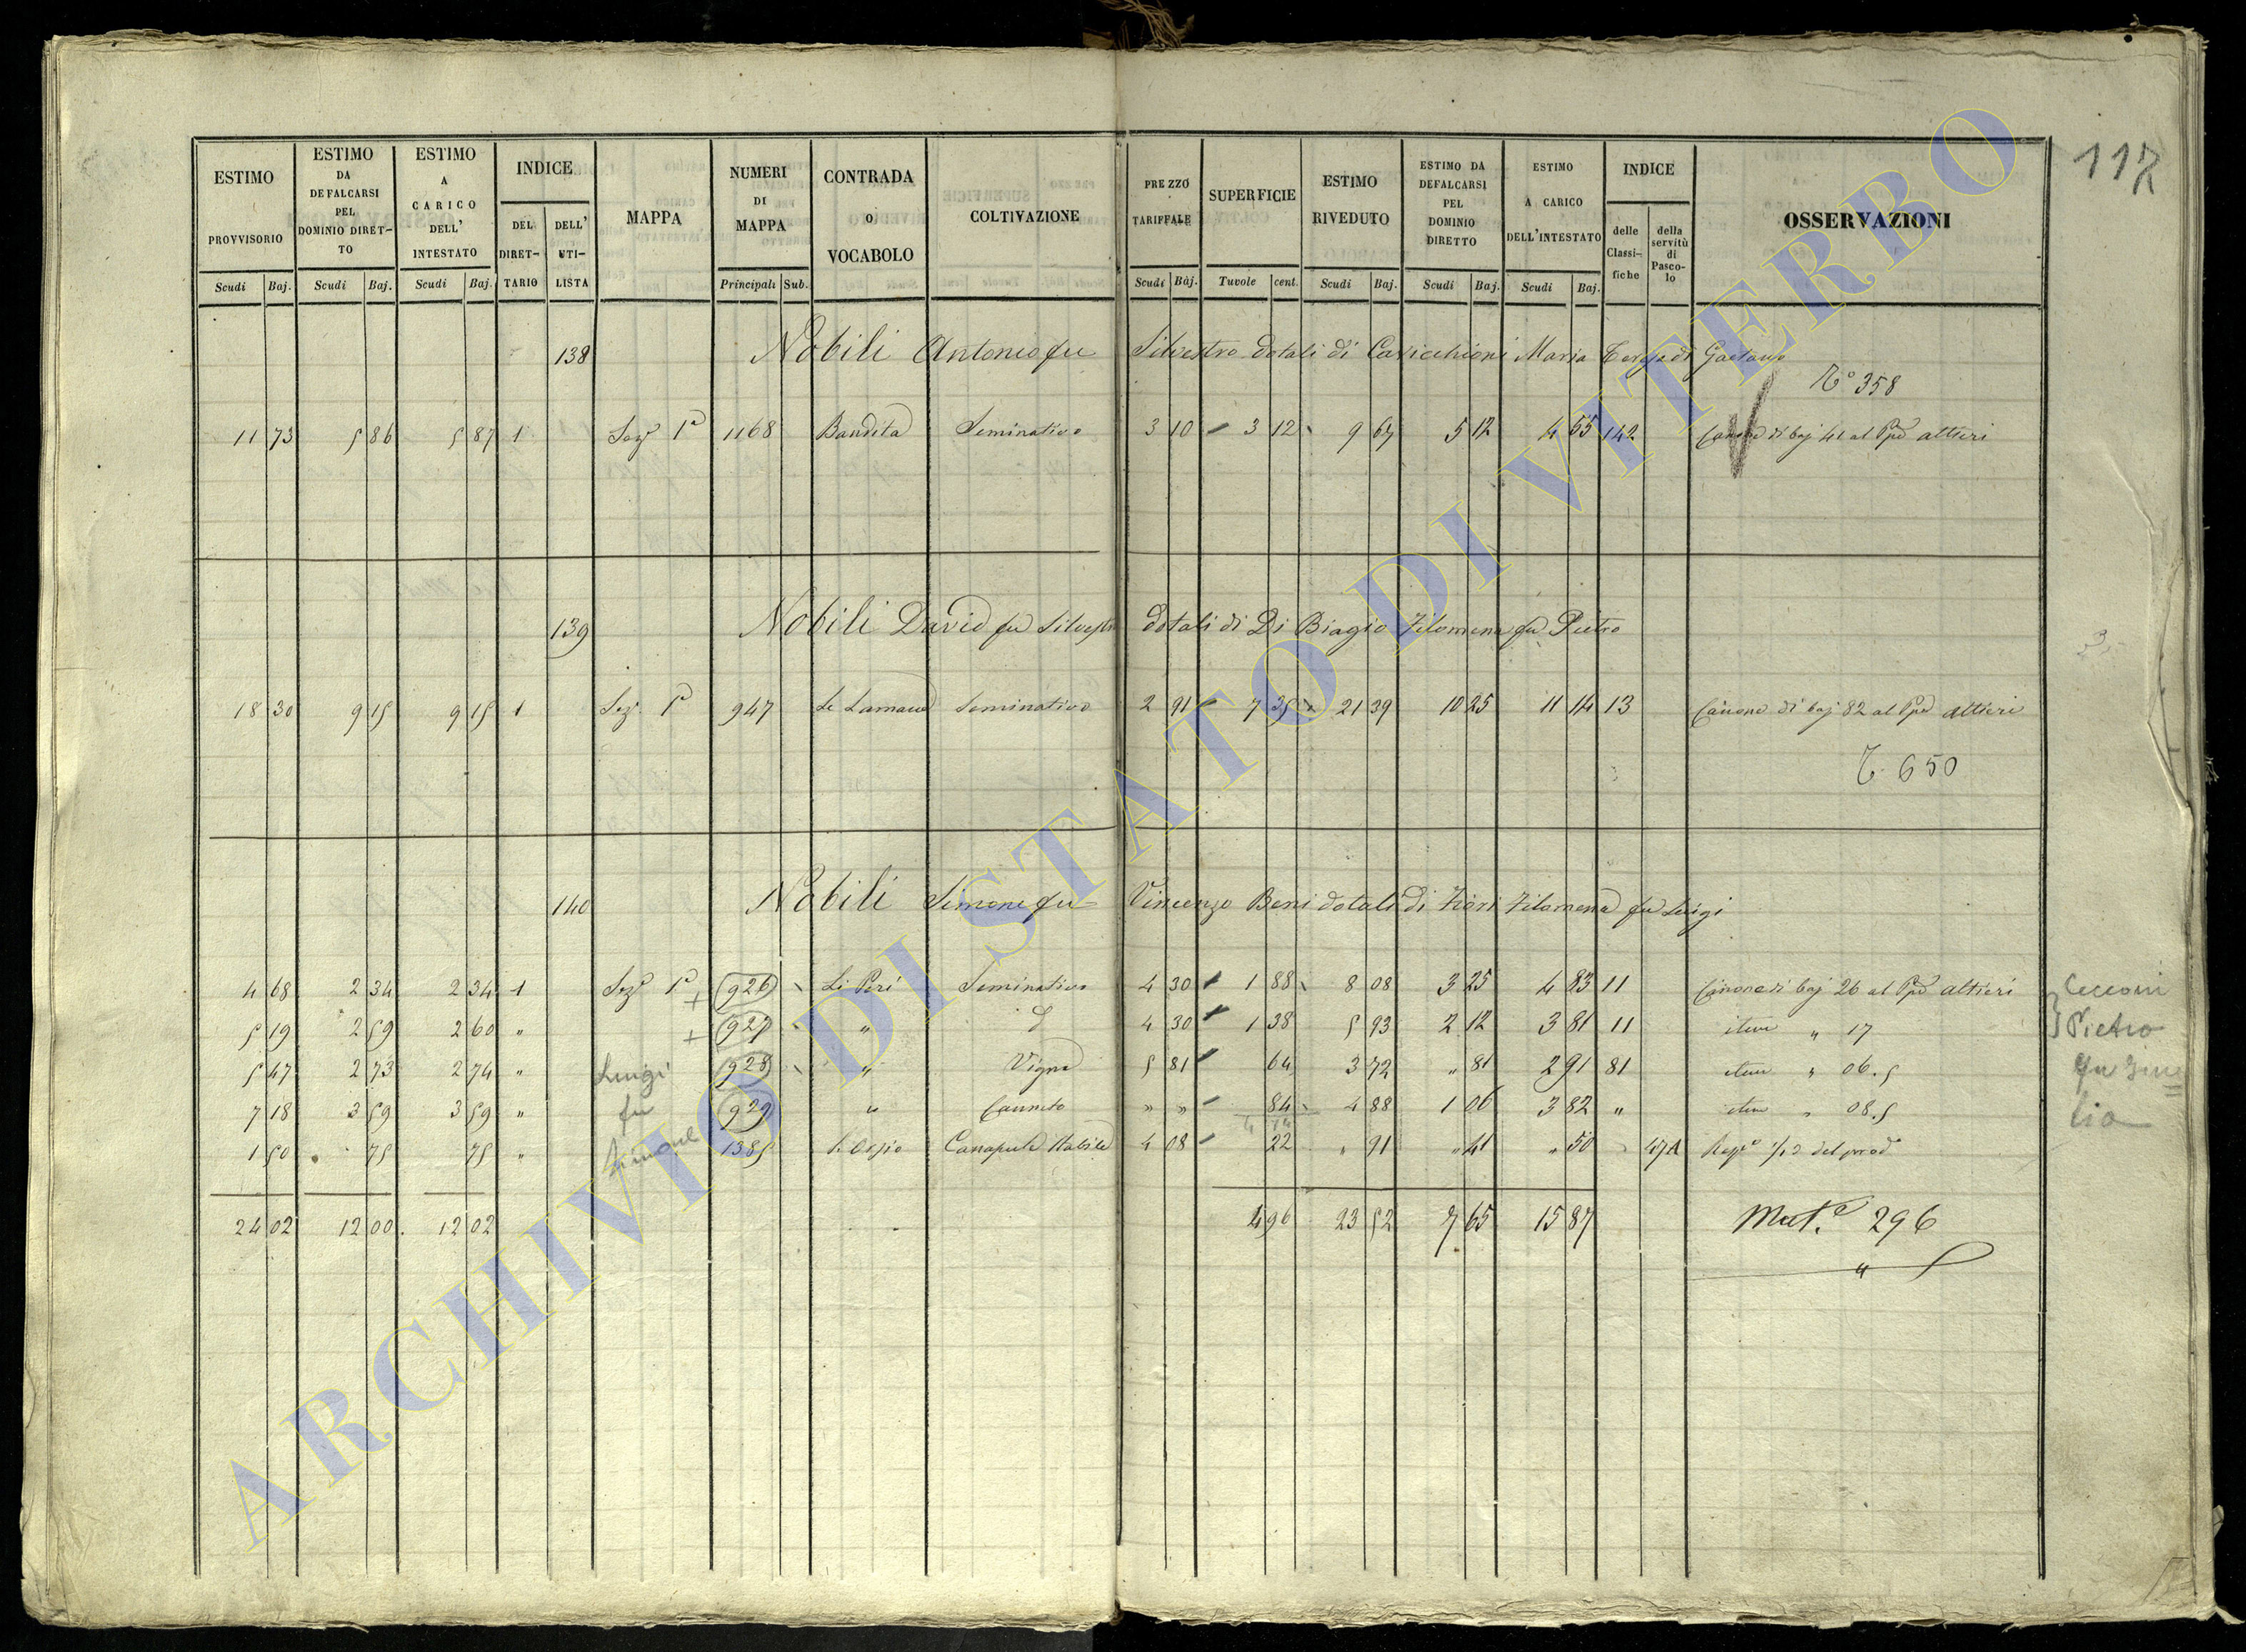 117
ESTIMO PROVVISORIO Scudi Baj.
ESTIMO DA DEFALCARSI PEL DOMINIO DIRETTO Scudi Baj.
ESTIMO A CARICO DELL' INTESTATO Scudi Baj.
INDICE DEL DIRETTARIO DELL' UTILISTA
MAPPA
NUMERI DI MAPPA Principali Sub.
CONTRADA O VOCABOLO
COLTIVAZIONE
PREZZO TARIFFALE Scudi Baj.
SUPERFICIE Tavole cent.
ESTIMO RIVEDUTO Scudi Baj.
ESTIMO DA DEFALCARSI PEL DOMINIO DIRETTO Scudi Baj.
ESTIMO A CARICO DELL'INTESTATO Scudi Baj.
INDICE delle Classifiche della servitù di Pascolo
OSSERVAZIONI
138 Nobili Antonio fu Silvestro dotali di Cavicchioni Maria di Gaetano
358
11 73 5 86 5 87 1 Sez. 1a 1168 Bandita Seminativo 3 10 3 12 9 67 5 12 4 55 142 Canone di baj 41 al Ppe Altieri
139 Nobili David fu Silvestro dotali di Di Biagio Filomena fu Pietro
18 30 9 15 9 15 1 Sez. 1a 947 Seminativo 2 91 7 35 21 39 10 25 11 14 13 Canone di baj 82 al Ppe Altieri
650
140 Nobili Simone fu Vincenzo Beni dotali di Fiori Filomena fu Luigi
4 68 2 34 2 34 1 Seza 1a + 926 Li Peri Seminativo 4 30 1 88 8 08 3 25 4 83 11 Canone di baj 26 al Ppe Altieri
5 19 2 59 2 60 " + 927 " d 4 30 1 38 5 93 2 12 3 81 11 item " 17
5 47 2 73 2 74 " 928 " Vigna 5 81 64 3 72 " 81 2 91 81 item " 06.5
7 18 3 59 3 59 " 929 " Canneto " " 84 4 88 1 06 3 82 " item " 08.5
1 50 75 75 " 1385 Canapule 4 08 22 " 91 " 41 " 50 47A del prod
Luigi
fu
Simone
Cecconi
Pietro
fu
24 02 12 00 12 02 4 96 23 52 7 65 15 87 Mut.e 296
ARCHIVIO DI STATO DI VITERBO